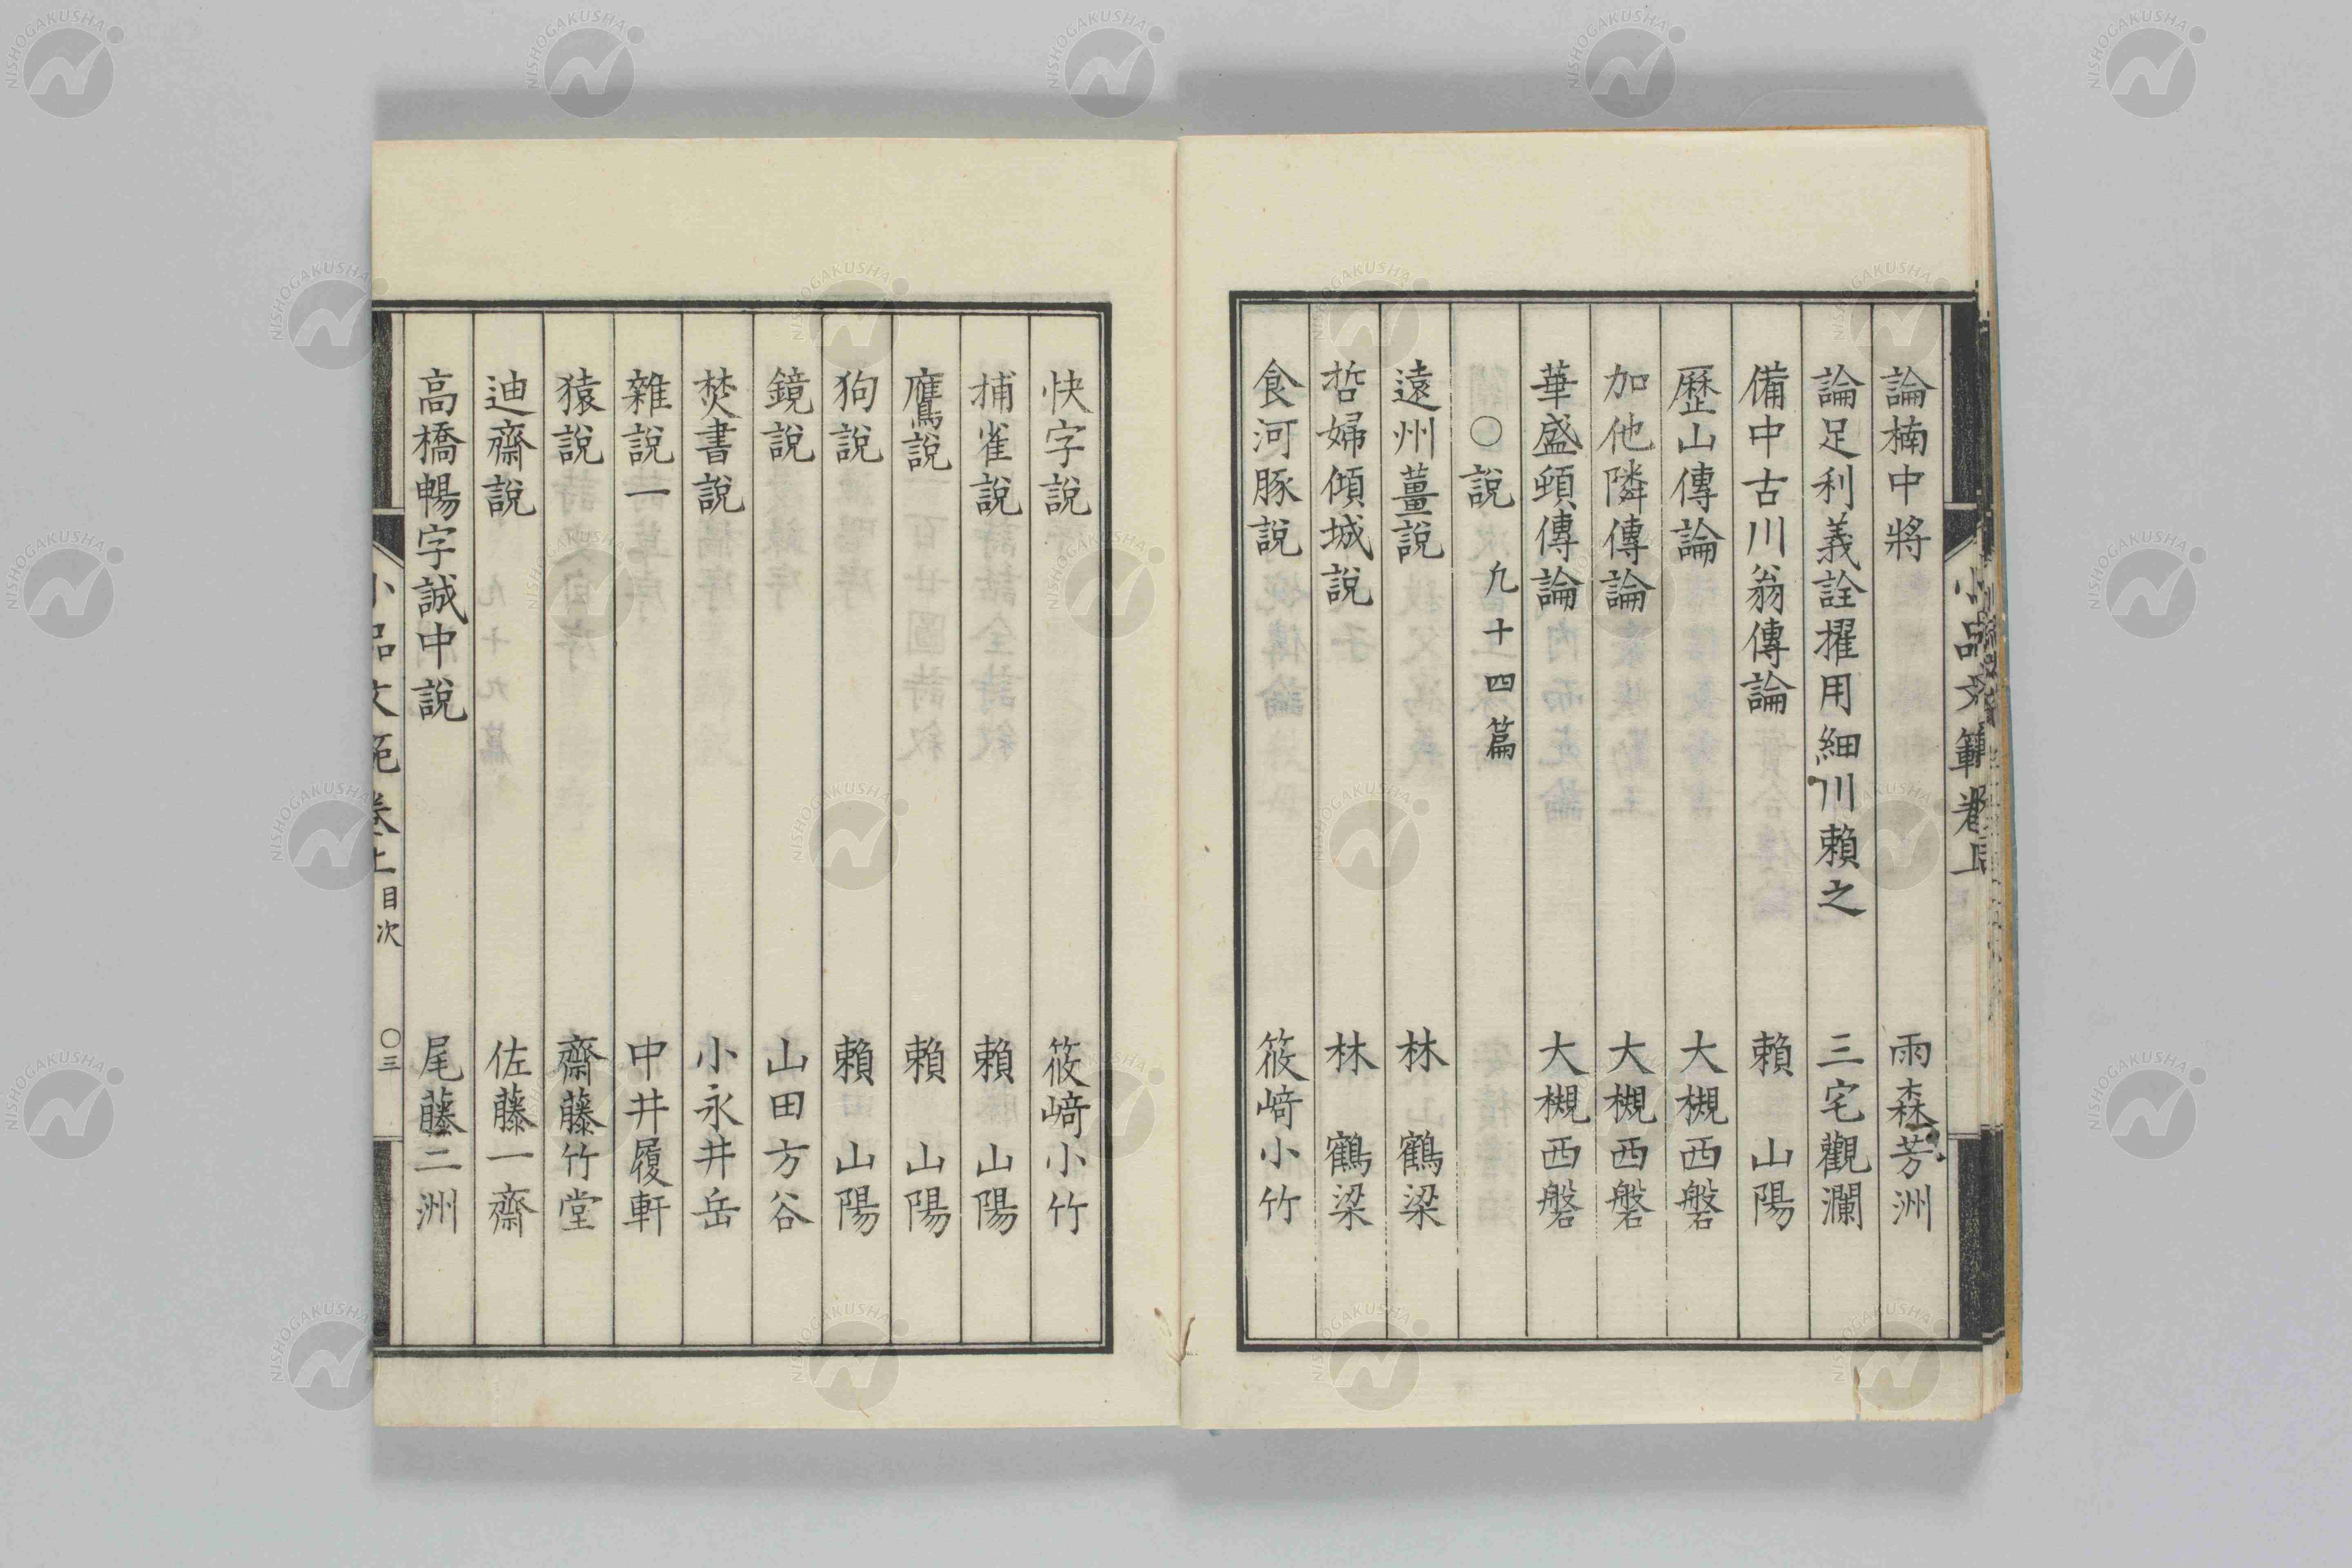 論楠中將　雨森芳洲
論足利義詮擢用細川賴之　三宅觀瀾
備中古川翁傳論　賴山陽
歷山傳論　大槻西磐
加他隣傳論　大槻西磐
華盛頓傳論　大槻西磐
○說　九十四篇
遠州薑說　林鶴梁
哲婦傾城說　林鶴梁
食河豚說　筱﨑小竹
快字說　筱﨑小竹
捕雀說　賴山陽
鷹說　賴山陽
狗說　賴山陽
鏡說　山田方谷
焚書說　小永井岳
雜說一　中井履軒
猿說　齋藤竹堂
迪齋說　佐藤一齋
高橋暢字誠中說　尾藤二洲
小品文範卷上目次　○三
小品文範卷上
NISHOGAKUSHA